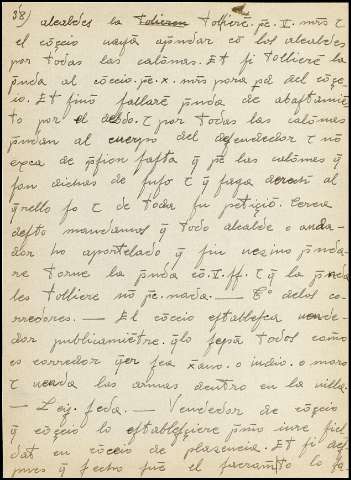 38) alcaldes la tollierē. pe. II. mrs. τ
el cōceio vayā apūdar cō los alcaldes
por todas las calōnas. Et si tolliere la
pūda al cōceio. pe. x. mrs pora pd del cōçe-
io. Et sinō fallarē pūda de abastamiē
to por el τ por todas las calōnas
pūdan al cuerpo del defendedor τ nō
exca de p̄sion fasta q̄ pe las calōnas q̄
son dichas de suso τ q̄ faga derech al
q̄rello so τ de toda su petiçiō. Cerca
desto mandamos q̄ todo alcalde o anda-
dor ho aportelado q̄ sin uezino pūda-
re torne la pūda cō. V. ff. τ q̄ la pūda
les tolliere nō pe. nada. — C° delos co-
rredores. — El cōceio establesca uende-
dor publicamiētre. q̄lo sepā todos como
es corredor q̄er sea x̄ano. o iudio. o moro
τ uenda las armas dentro en la uilla.
— Leig. feda. — Vendedor de cōçeio
q̄ cōçeio lo establesçiere p̄mo iure fiel
dat en cōçeio de plasencia. Et si des
pues q̄ fecho fuē el sacramto lo fa